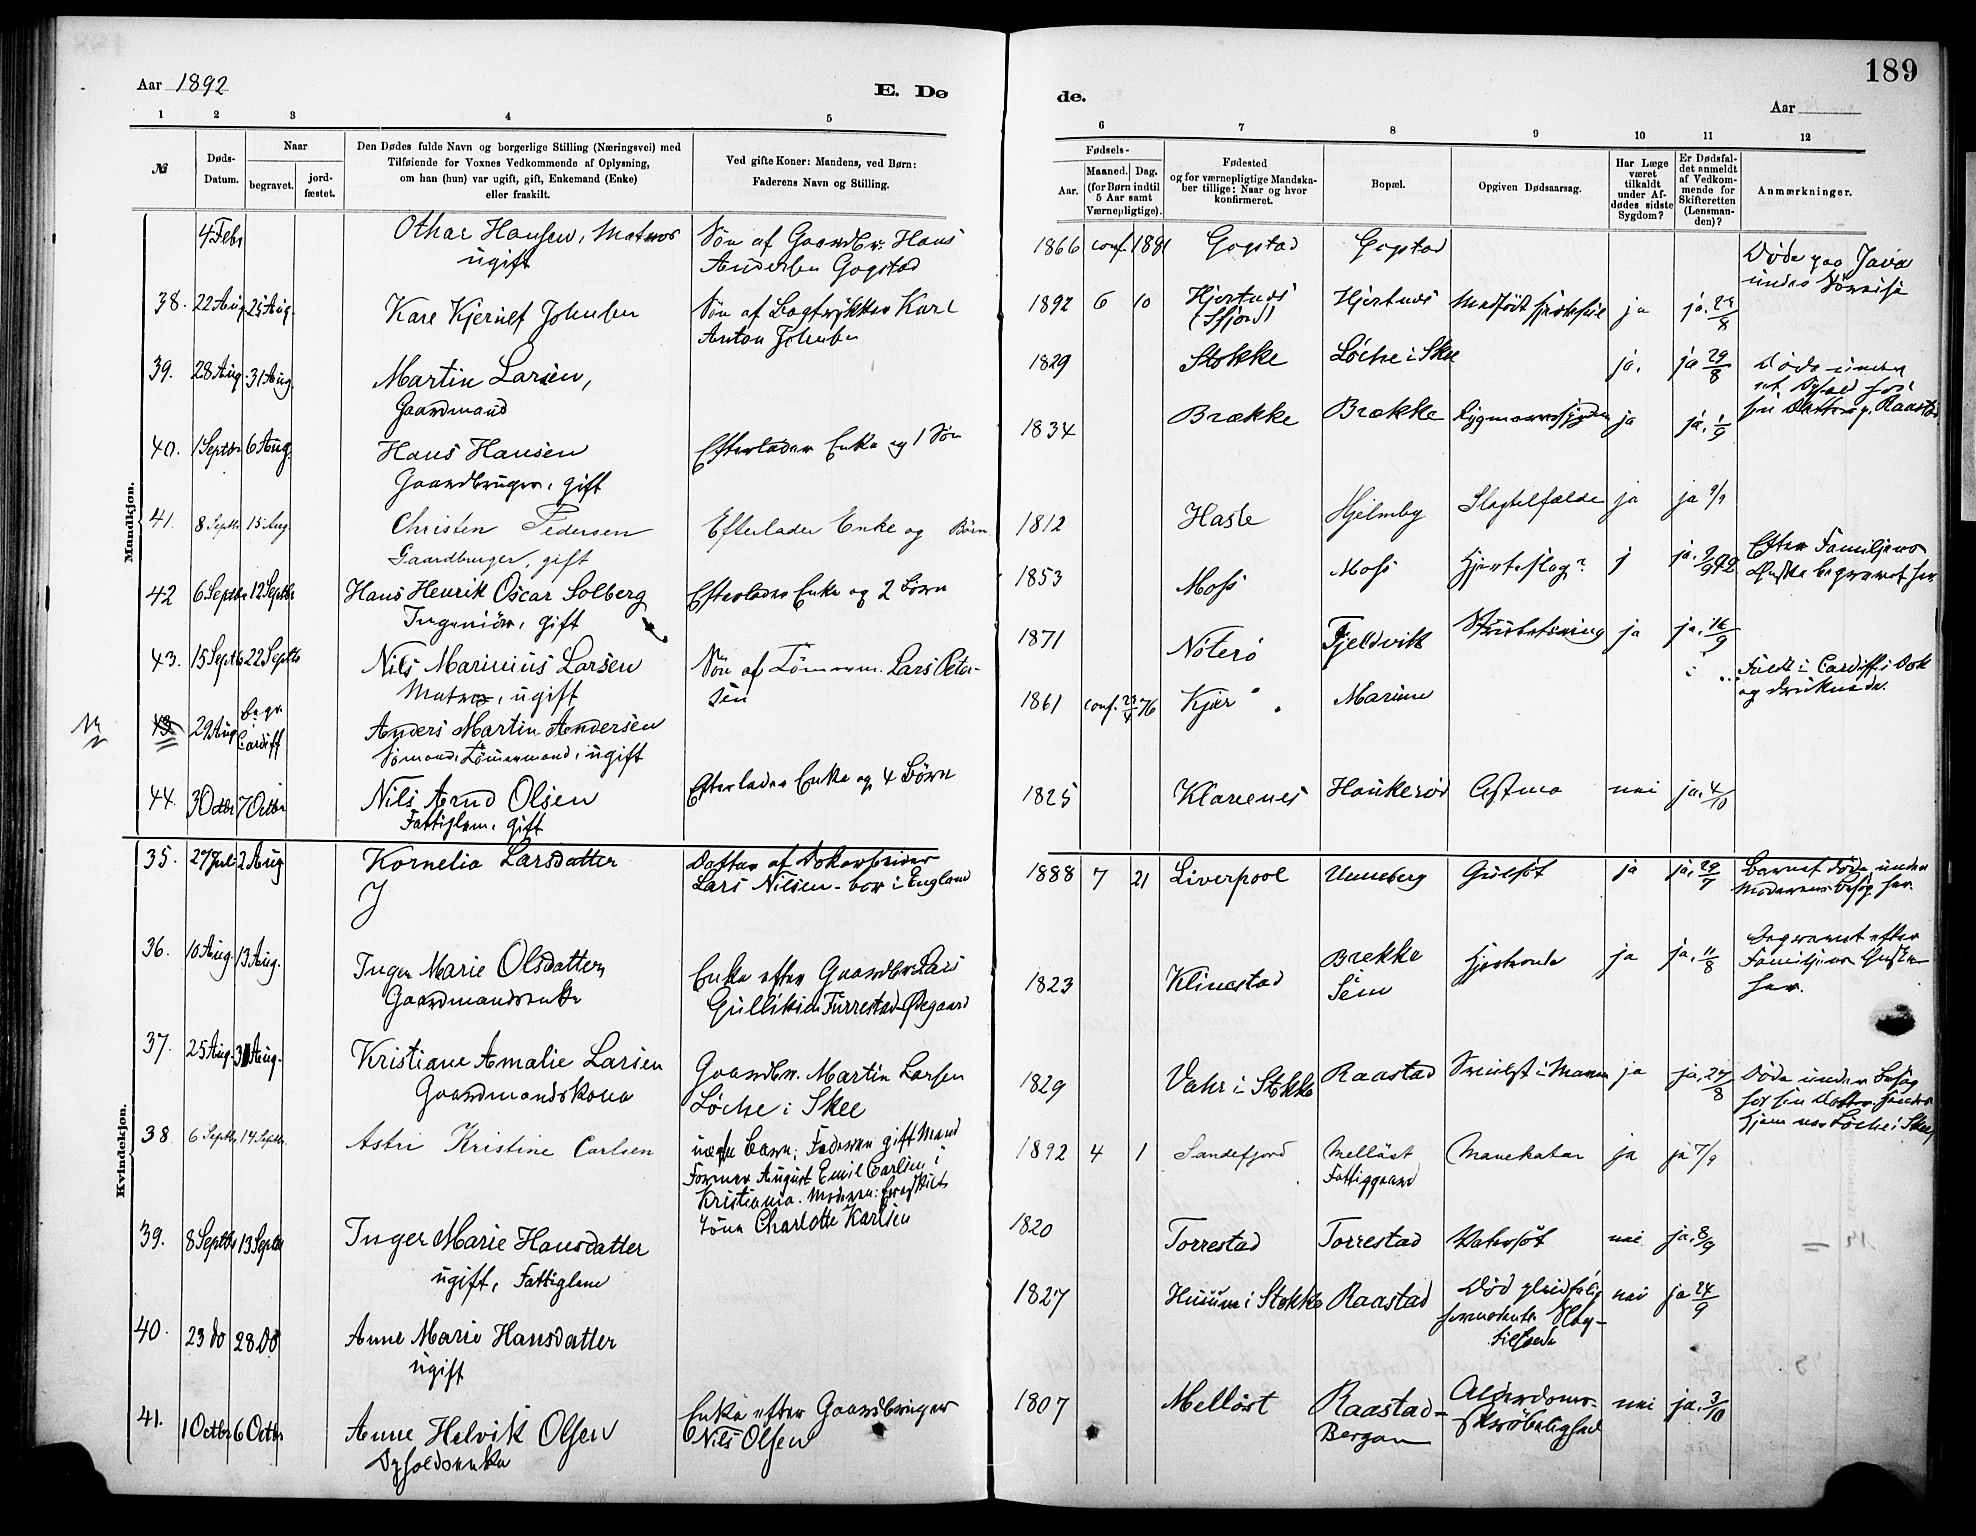 189
Aar 1892
E. Dø
de.
Aar
1 2 3 4 5
6 7 8 9 10 11 12
№
Døds-
Datum.
Naar
begravet.
jord-
fæstet.
Den Dødes fulde Navn og borgerlige Stilling (Næringsvei) med
Tilføiende for Voxnes Vedkommende af Oplysning,
om han (hun) var ugift, gift, Enkemand (Enke)
eller fraskilt.
Ved gifte Koner: Mandens, ved Børn:
Faderens Navn og Stilling.
Fødsels-
Aar.
Maaned. Dag.
(for Børn indtil
5 Aar samt
Værnepligtige).
Fødested
og for værnepligtige Mandska-
ber tillige: Naar og hvor
konfirmeret.
Bopæl.
Opgiven Dødsaarsag.
Har Læge
været
tilkaldt
under Af-
dødes sidste
Sygdom?
Er Dødsfal-
det anmeldt
af Vedkom-
mende for
Skifteretten
(Lensman-
den)?
Anmærkninger.
Mandkjøn.
4 Febr Othar Hansen, Matros Søn af Gaardbr. Hans 1866 conf. 1881 Gogstad Gogstad Døde paa Java
ugift Andersen Gogstad under
38. 22 Aug 25 Aug. Karl Johnsen Søn af Bogtrykker Karl 1892 6 10 Hjertnes Hjertnes Medfødt ja ja.
Anton Johnsen (Sfjord)
39. 28 Aug. 31 Aug. Martin Larsen, 1829 Stokke Løche i Skee ja. ja 29/8 Døde under
Gaardmand sin Datter p. Raastad
40. 1 Septbr 6 Aug. Hans Hansen Efterlader Enke og 1 Søn 1834 Brække Brække ja ja. 1/9
Gaardbruger, gift
41. 8 Septbr 15 Aug Christen Pedersen Efterlader Enke og Børn 1812 Hasle Hjelmby Slagtilfælde ja ja 9/9
Gaardbruger, gift
42 6 Septbr 12 Septbr Hans Henrik Oscar Solberg Efterlader Enke og 2 Børn 1853 Moss Moss Hjerteslag? j ja. Efter Familjens
Ingeniør, gift Ønske begravet her
43. 15 Septb 22 Septb Nils Marinius Larsen Søn af Tømmerm. Lars Peter- 1871 Nøterø Fjeldvik ja ja. 16/9
Matros, ugift sen
43 29 Aug begr. Cardiff Anders Martin Andersen 1861 conf. 23/4 76 Kjær Marum Faldt i Cardiff i Dok
Sømand, Tømmermand, ugift og druknede.
44. 3 Octbr 7 Octbr Nils Arnd Olsen Efterlader Enke og 4 Børn 1825 Klavenes Haukerød Astma nei ja. 4/10
Fattiglem, gift
Kvindekjøn.
35. 27 Juli 2 Aug Kornelia Larsdatter Datter af Dokarbeider 1888 7 21 Liverpool Unneberg Gulsot ja ja. 29/7 Barnet døde under
Lars Nilsen - bor i England Moderens Besøg her.
36. 10 Aug. 13 Aug. Inger Marie Olsdatter, Enke efter Gaardbr. Lars 1823 Klinestad Brekke ja ja. 11/8 Begravet efter
Gaardmandsenke Gulliksen Furrestad-Ødegaard Sem Familjens Ønske
her.
37. 25 Aug. 31 Aug. Kristiane Amalie Larsen Gaardbr. Martin Larsen 1829 Vahr i Stokke Raastad Svulst i Maven ja ja. 27/8 Døde under Besøg
Gaardmandskona Løche i Skee for sin Datter
hjem var Løche i Skee
38 6 Septbr 14 Septbr. Astri Kristine Carlsen uægte Barn; Faderen gift Mand 1892 4 1 Sandefjord Melløst Mavekatar ja ja 7/9
Former August Emil Carlsen i Fattiggaard
Kristiania. Moderen: fraskilt
Kone Charlotte Karlsen
39. 8 Septbr 13 Septbr Inger Marie Hansdatter 1820 Torrestad Torrestad Vatersot nei ja. 8/9
ugift, Fattiglem
40. 23 do 28 Do Anne Marie Hansdatter 1827 Husum i Stokke Raastad Død nei ja 24/9
ugift formodentl. Slag-
tilfælde
41. 1 Octbr 6 Octbr Anne Helvik Olsen Enke efter Gaardbruger 1807 Melløst Raastad- Alderdoms- nei ja. 3/10
Opholdsenke Nils Olsen Bergan skrøbelighed